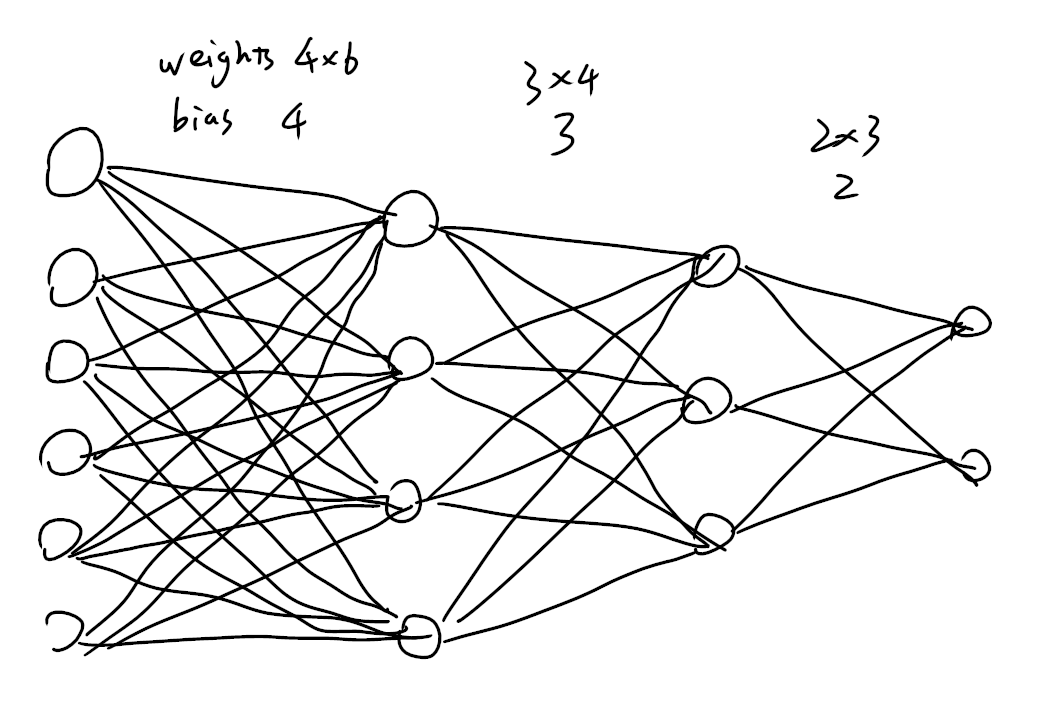 weights 4×6
bias 4
3×4
3
2×3
2